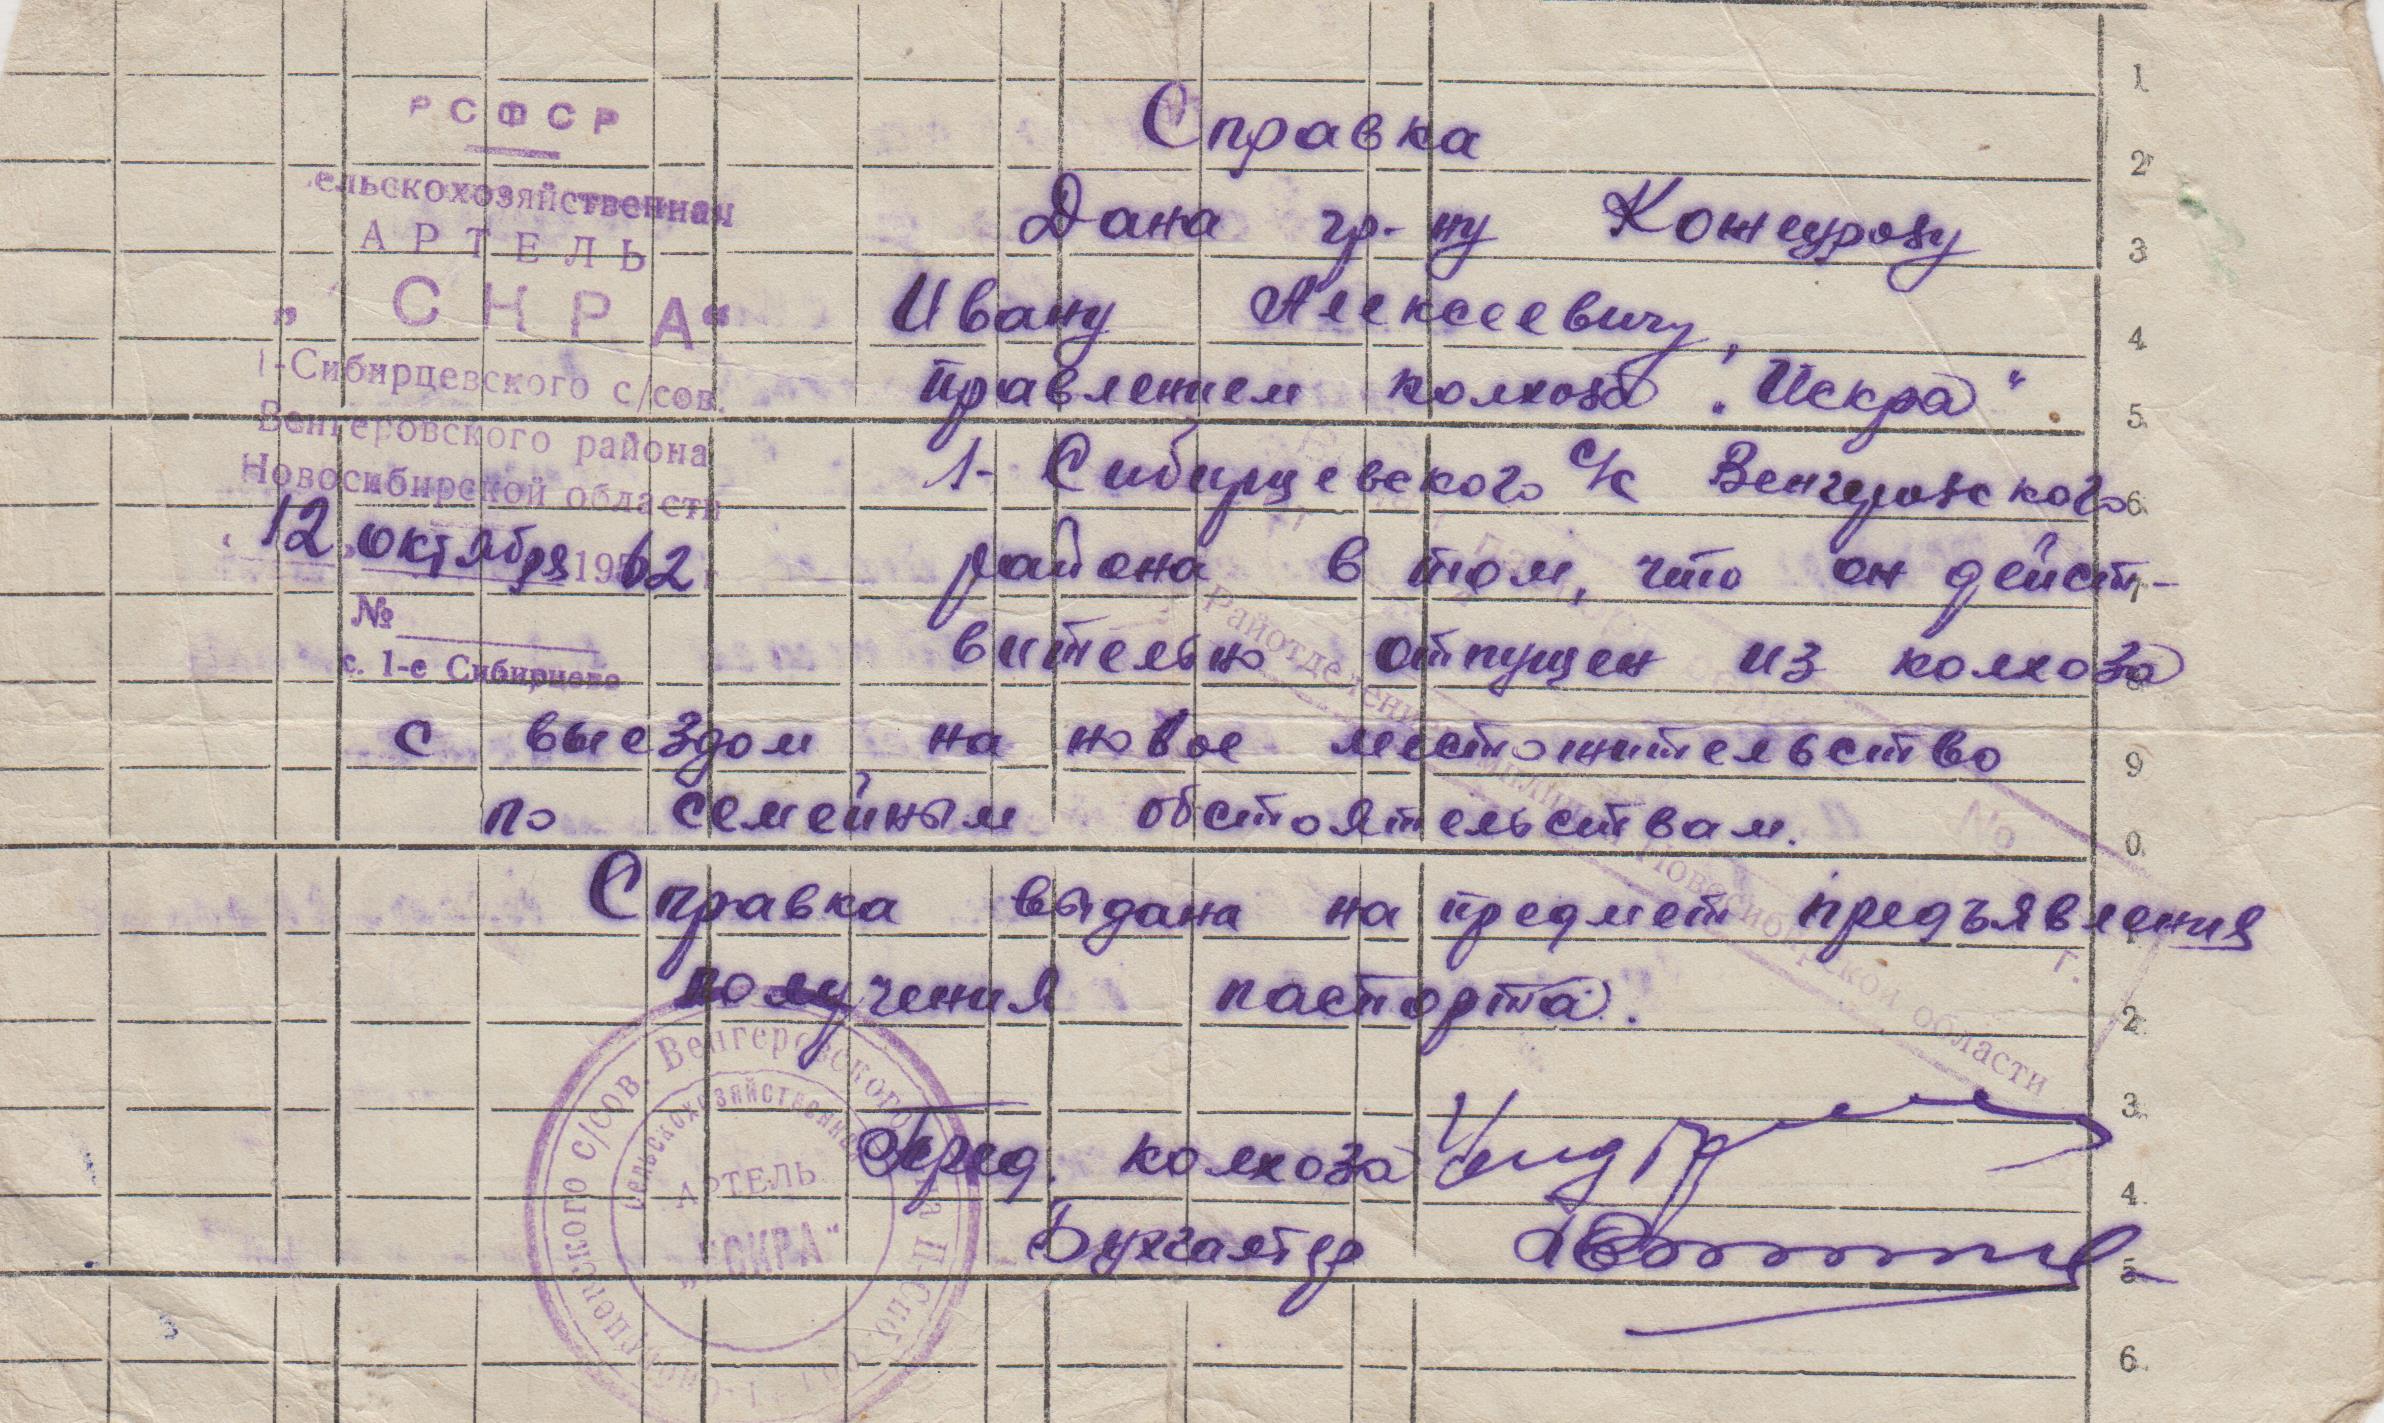 РСФСР
ельскохозяйственная
АРТЕЛЬ
„ СКРА“
1-Сибирцевского с/сов.
Венгеровского района
Новосибирской области
12 октября 1962 г
№
с. 1-е Сибирцево
Справка
Дана гр-ну
Ивану Алексеевичу,
правлением колхоза „Искра“
1-Сибирцевского с/с Венгеровского
района в том, что он дейст-
вительно отпущен из колхоза
с выездом на новое местожительство
по семейным обстоятельствам.
Справка выдана на предмет предъявления
получения паспорта.
Пред. колхоза
Бухгалтер
1
2
3
4
5
6
7
8
9
0
1
2
3
4
5
6
Райотделение милиции Новосибирской области
№
г.
с/сов. Венгеровского
сельскохозяйственная
АРТЕЛЬ
„ИСКРА“